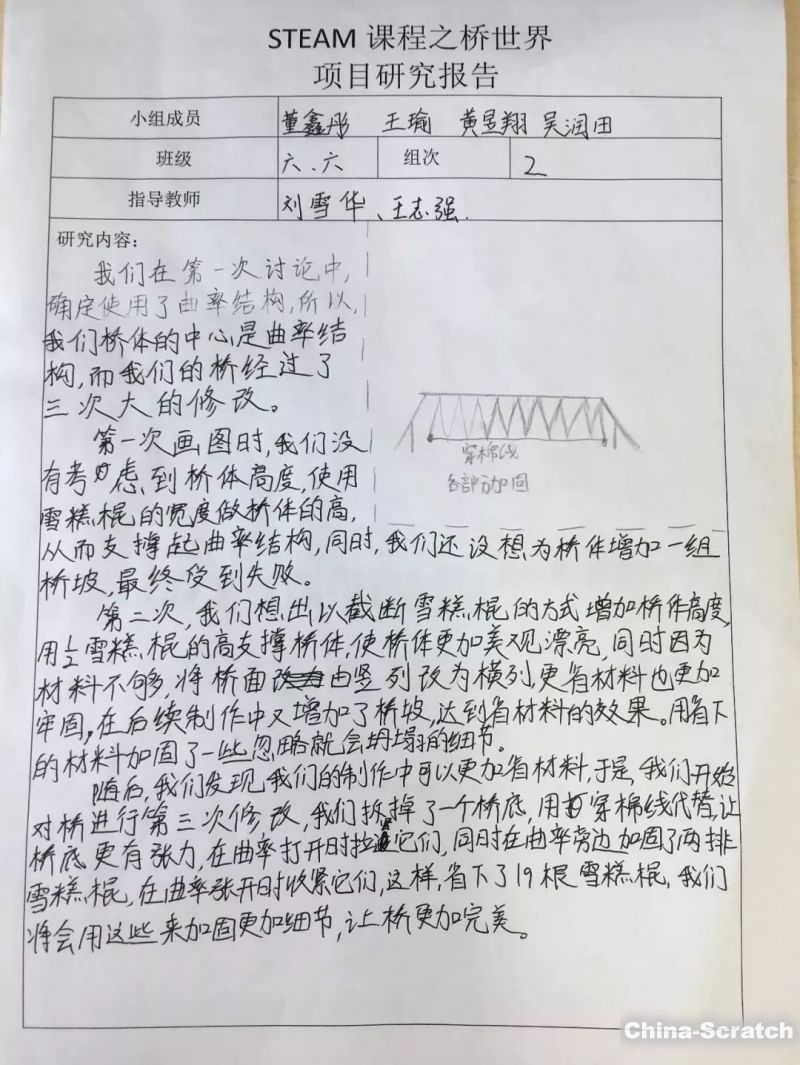 STEAM 课程之桥世界
项目研究报告
小组成员 董鑫彤 王瑜 黄昱翔 吴润田
班级 六、六 组次 2
指导教师 刘雪华、王志强.
研究内容：
我们在第一次讨论中,
确定使用了曲率结构,所以,
我们桥体的中心是曲率结
构,而我们的桥经过了
三次大的修改。
第一次画图时,我们没
有考虑到桥体高度,使用
雪糕棍的宽度做桥体的高,
从而支撑起曲率结构,同时,我们还没想为桥体增加一组
桥坡,最终受到失败。
穿棉线
各部分加固
第二次,我们想出以截断雪糕棍的方式增加桥体高度,
用1/2雪糕棍的高支撑桥体,使桥体更加美观漂亮,同时因为
材料不够,将桥面由竖列改为横列,更省材料也更加
牢固,在后续制作中又增加了桥坡,达到省材料的效果。用省下
的材料加固了一些忽略就会坍塌的细节。
随后,我们发现我们的制作中可以更加省材料,于是,我们开始
对桥进行第三次修改,我们拆掉了一个桥底,用穿棉线代替,让
桥底更有张力,在曲率打开时拉紧它们,同时在曲率旁边加固了两排
雪糕棍,在曲率张开时收紧它们,这样,省下了19根雪糕棍,我们
将会用这些来加固更加细节,让桥更加完美。
China-Scratch